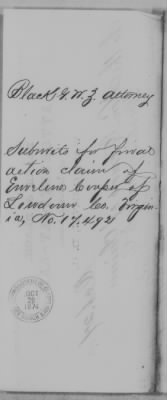 Black, G. W. Z. attorney
Submits for final
action claim of
Emeline Cooper of
Loudoun Co. Virgin-
ia, No. 17.492
OCT
28
1874